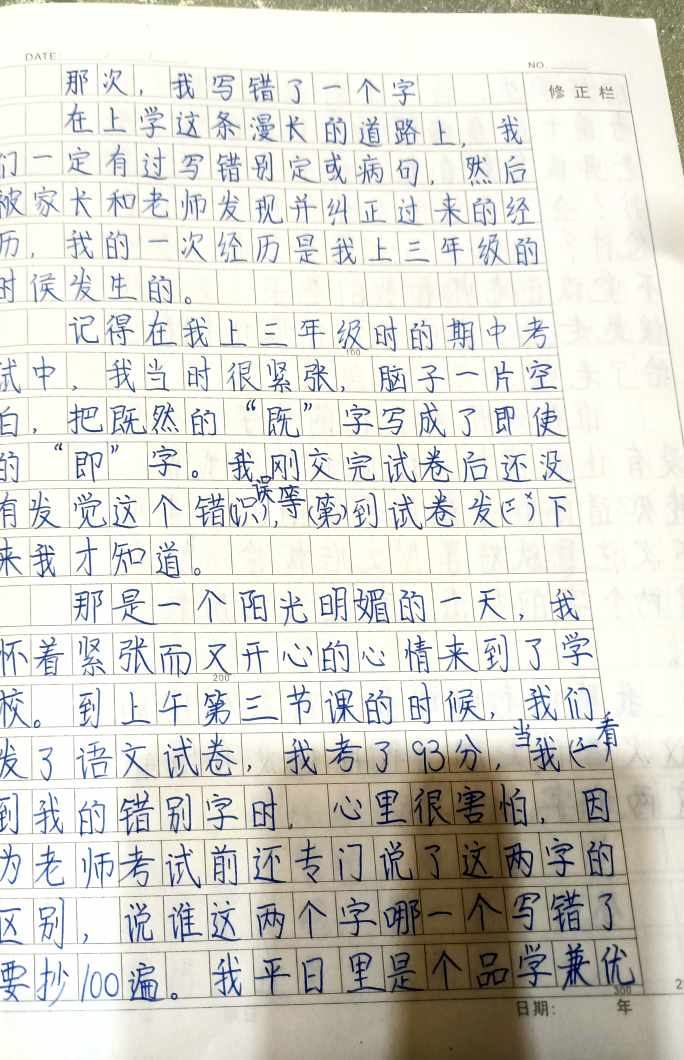 DATE
NO.
那次，我写错了一个字
修正栏
在上学这条漫长的道路上，我
们一定有过写错别定或病句，然后
被家长和老师发现并纠正过来的经
历，我的一次经历是我上三年级的
时侯发生的。
记得在我上三年级时的期中考
100
试中，我当时很紧张，脑子一片空
白，把既然的“既”字写成了即使
的“即”字。我刚交完试卷后还没
误 等
有发觉这个错(识)，(第)到试卷发下
来我才知道。
那是一个阳光明媚的一天，我
怀着紧张而又开心的心情来到了学
200
校。到上午第三节课的时候，我们
当 看
发了语文试卷，我考了93分，我
到我的错别字时，心里很害怕，因
为老师考试前还专门说了这两字的
区别，说谁这两个字哪一个写错了
要抄100遍。我平日里是个品学兼优
300
日期：
年